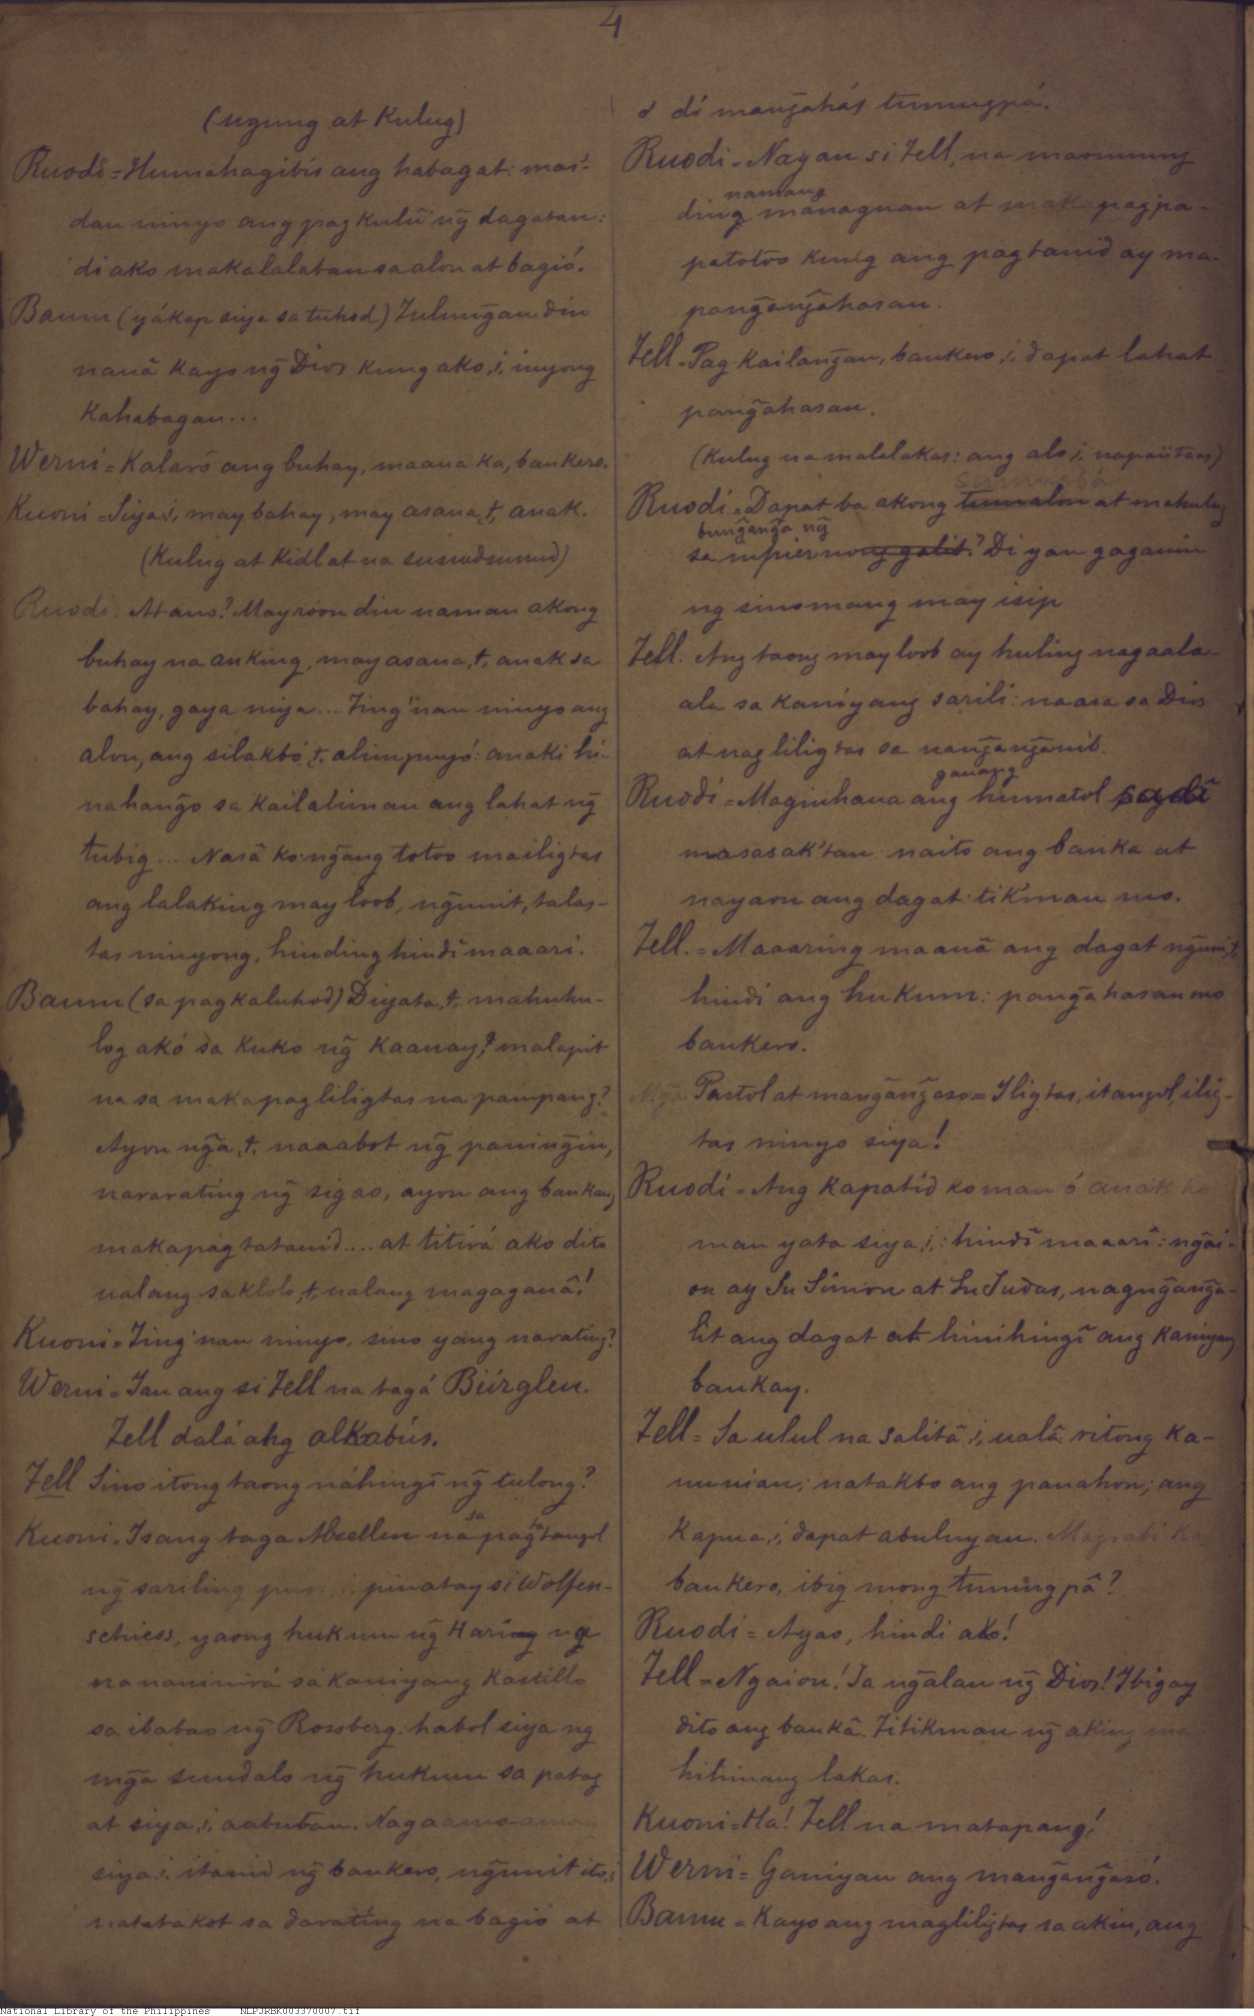 4
(ugung at Kulug)
Ruodi = Humahagibis ang habagat: mas-
dan ninyo ang pag kulu ng̃ dagatan:
di ako makalalaban sa alon at bagió.
Baum (yákap siya sa tuhod) Tulung̃an din
nauã kayo ng̃ Dios kung ako,i, inyong
Kahabagan...
Werni = Kalaró ang buhay, maaua ka, bankero.
Kuoni = Siya,i, may bahay, may asaua,t, anak.
(Kulug at Kidlat na sunudsunud)
Ruodi. At ano? Mayroon din naman akong
buhay na anking, may asaua,t, anak sa
bahay, gaya niya... Ting'nan ninyo ang
alon, ang silakbó,t, alimpuyó: anaki hi-
nahang̃o sa Kailaliman ang lahat ng̃
tubig... Nasã ko ng̃ang totoo mailigtas
ang lalaking may loob, ng̃unit, talas-
tas ninyong, hinding hindi maaari.
Baum (sa pagkaluhod) Diyata,t, mahuhu-
log akó sa kuko ng̃ Kaauay,? malapit
na sa makapagliligtas na pampang?
Ayon ng̃a,t, naaabot ng̃ paning̃in,
nararating ng̃ sigao, ayon ang bankang
makapagtatauid.... at titirá ako dito
ualang saklolo,t, ualang magagauã!
Kuoni = Ting'nan ninyo, sino yang narating?
Werni = Ian ang si Tell na tagá Bürglen.
Tell dalá ang alkabús.
Tell Sino itong taong náhingi ng̃ tulong?
Kuoni. Isang taga Alzellen na sa pagtatangol
ng̃ sariling pinatay si Wolfen-
schiess, yaong hukum ng̃ Haring ng
na naninirá sa kaniyang Kastillo
sa ibabao ng̃ Rossberg. habol siya ng
mg̃a sundalo ng̃ hukum sa patag
at siya,i, aabutan. Nagaamo-amo
siya,i, itauid ng̃ bankero, ng̃unit ito,i
natatakot sa darating na bagió at
ó dí mang̃ahás tumugpá.
Ruodi = Nayan si Tell, na marunung
ding namang managuan at makapagpa-
patotoo kung ang pagtauid ay ma-
pang̃ang̃ahasan.
Tell = Pag kailang̃an, bankero,i, dapat lahat
pang̃ahasan.
(Kulug na malalakas: ang alo,i, napaiitaas)
Ruodi = Dapat ba akong tumalon sumubá at mahulug
sa bung̃ang̃a ng̃ infierno ng galit? Di yan gagauin
ng sinomang may isip
Tell. Ang taong may loob ay huling nagaala-
ala sa kaniyang sarili: naasa sa Dios
at nagliligtas sa nang̃ang̃anib.
Ruodi = Maginhaua ang ganang humatol
masasak'tan: naito ang banka at
nayaon ang dagat: tik'man mo.
Tell. = Maaaring maauã ang dagat ng̃uni,t,
hindi ang hukum: pang̃ahasan mo
bankero.
Mg̃a Pastol at mang̃ang̃aso = Iligtas, itangol, ilig-
tas ninyo siya!
Ruodi = Ang kapatid ko man ó anak ko
man yata siya,i,: hindi maaari: ng̃ai-
on ay Sn Simon at Sn Judas, nagng̃ang̃a-
lit ang dagat at hinihingi ang kaniyang
bankay.
Tell = Sa ulul na salitã,i, ualã ritong ka-
nunian; natakbo ang panahon; ang
kapua,i, dapat abuluyan. Magsabi ka
bankero, ibig mong tumugpã?
Ruodi = Ayao, hindi ako!
Tell = Ngaion! Sa ng̃alan ng̃ Dios! Ibigay
dito ang bankã. Titikman ng̃ aking ma
hihinang lakas.
Kuoni = Ha! Tell na matapang!
Werni = Ganiyan ang mang̃ang̃asó.
Baum = Kayo ang magliligtas sa akin, ang
National Library of the Philippines NLPJRBK003370007.tif